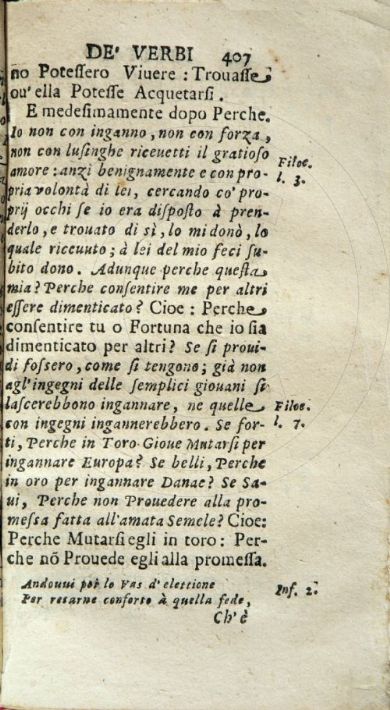 DE' VERBI 407
no Potessero Viuere : Trouasse
ou' ella Potesse Acquetarsi .
E medesimamente dopo Perche.
Io non con inganno , non con forza ,
non con lusinghe riceuetti il gratioso
amore : anzi benignamente e con pro-
pria volontà di lei , cercando co' pro-
prij occhi se io era disposto à pren-
derlo , e trouato di sì , lo mi donò , lo
quale riceuuto ; à lei del mio feci su-
bito dono . Adunque perche questa
mia ? Perche consentire me per altri
essere dimenticato ? Cioe : Perche
consentire tu o Fortuna che io sia
dimenticato per altri ? Se si proui-
di fossero , come si tengono ; già non
agl'ingegni delle semplici giouani si
lascerebbono ingannare , ne quelle
con ingegni ingannerebbero . Se for-
ti , Perche in Toro Gioue Mutarsi per
ingannare Europa ? Se belli , Perche
in oro per ingannare Danae ? Se Sa-
ui , Perche non Prouedere alla pro-
messa fatta all'amata Semele ? Cioe:
Perche Mutarsi egli in toro : Per-
che nō Prouede egli alla promessa.
Andouui poi lo Vas d' elettione
Per recarne conforto à quella fede ,
Ch' è
Filoc.
l. 3.
Filoc.
l. 7.
Inf. 2.